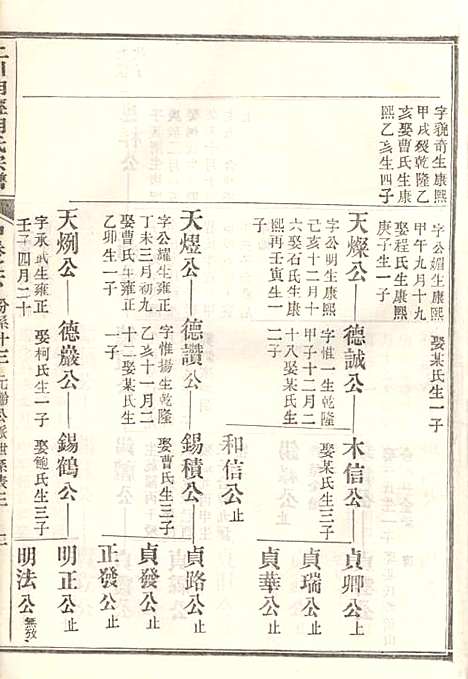 字貌奇生康熙
甲戌癸乾隆乙
亥娶曹氏生康
熙乙亥生四子
字公媚生康熙
甲午九月十九
娶程氏生康熙
庚子生一子
娶某氏生一子
天燦公
字公明生康熙
己亥十二月十
六娶石氏生康
熙壬寅生一
子
德誠公
字惟一生乾隆
甲子十二月二
十八娶某氏生
二子
木信公
娶某氏生三子
貞卿公止
貞瑞公止
貞華公止
和信公止
天煜公
字公耀生雍正
丁未三月初九
娶曹氏生雍正
乙卯生一子
德讚公
字惟揚生乾隆
乙亥十一月二
十二娶某氏生
一子
錫積公
娶曹氏生三子
貞路公止
貞發公止
正發公止
天烱公
字承武生雍正
壬子四月二十
德嚴公
娶柯氏生一子
錫鶴公
娶鮑氏生三子
明正公止
明法公無敎
明經胡氏宗譜
份系十三
元齡公派世系表三